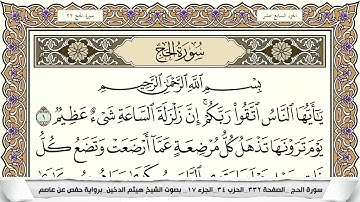 الجزء السابع عشر
سورة الحج ٢٢
سُورَةُ الحَجِّ
بِسْمِ اللَّهِ الرَّحْمَٰنِ الرَّحِيمِ
يَٰٓأَيُّهَا النَّاسُ اتَّقُوا رَبَّكُمْ ۚ إِنَّ زَلْزَلَةَ السَّاعَةِ شَىْءٌ عَظِيمٌ ١
يَوْمَ تَرَوْنَهَا تَذْهَلُ كُلُّ مُرْضِعَةٍ عَمَّآ أَرْضَعَتْ وَتَضَعُ كُلُّ
سورة الحج _الصفحة ٣٣٢_ الحزب ٣٤_ الجزء ١٧_ بصوت الشيخ هيثم الدخين برواية حفص عن عاصم